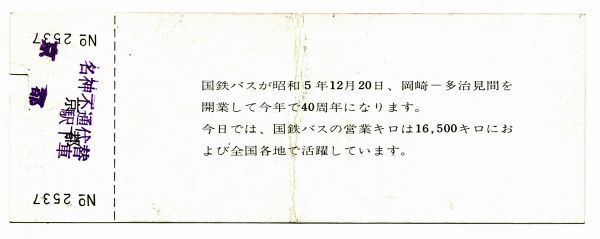 № 2537
京都
名神不通代替
京都
駅下車
№ 2537
国鉄バスが昭和5年12月20日、岡崎－多治見間を
開業して今年で40周年になります。
今日では、国鉄バスの営業キロは16,500キロにお
よび全国各地で活躍しています。